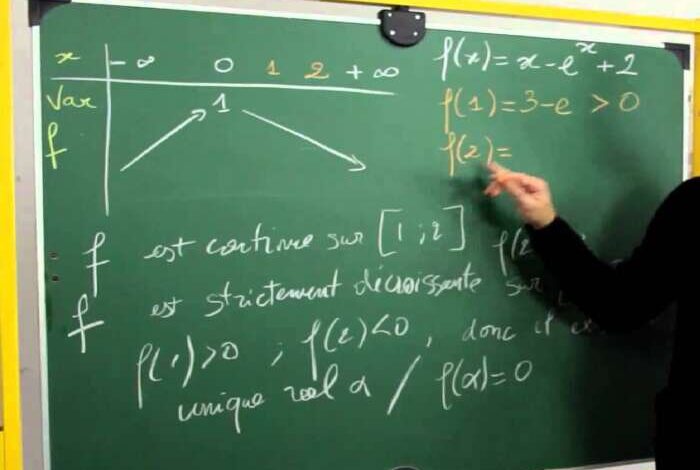 x -∞ 0 1 2 +∞
Var 1
f
f(x) = x - e^x + 2
f(1) = 3 - e > 0
f(2) =
f est continue sur [1 ; 2] f(2
f est strictement décroissante sur [
f(1)>0 ; f(2)<0, donc il
unique réel α / f(α)=0